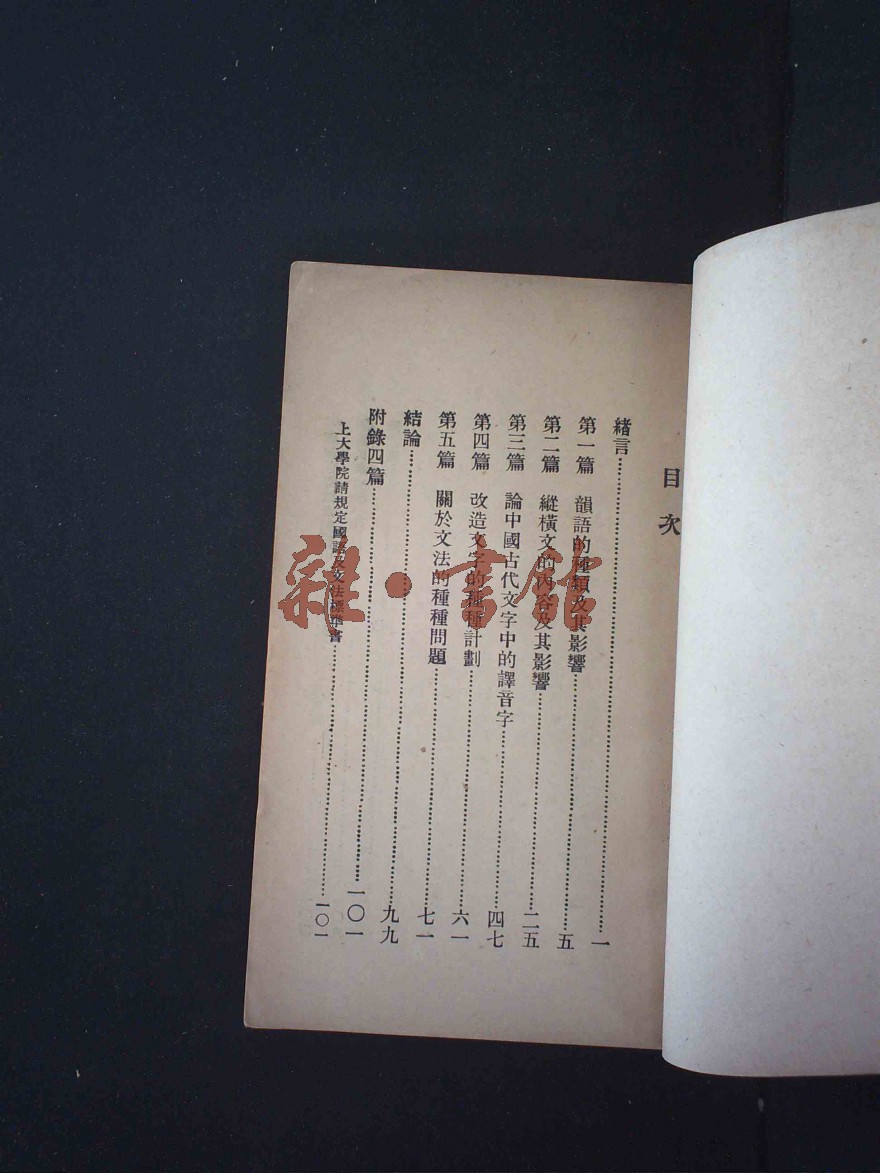 目次
緒言一
第一篇 韻語的種類及其影響五
第二篇 縱橫文的內容及其影響二五
第三篇 論中國古代文字中的譯音字四七
第四篇 改造文字的種種計劃六一
第五篇 關於文法的種種問題七一
結論九九
附錄四篇一〇一
上大學院請規定國語及文法標準書一〇一
雜·書館